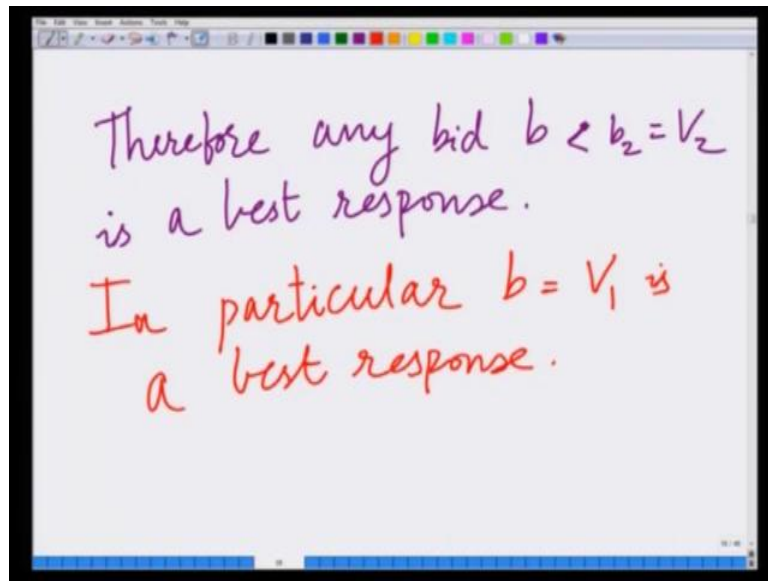 File Edit View Insert Actions Tools Help
Therefore any bid b < b₂ = V₂
is a best response.
In particular b = V₁ is
a best response.